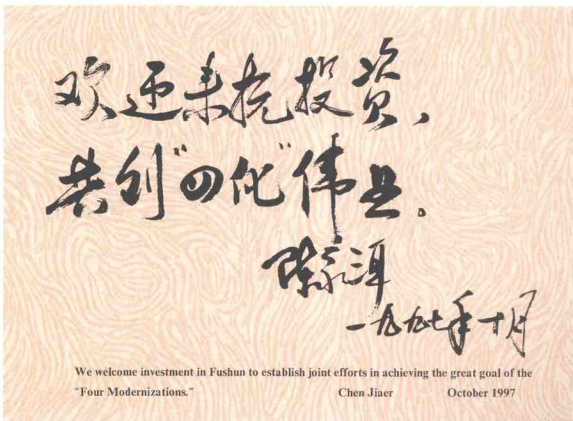 欢迎来抚投资，
共创"四化"伟业。
陈佳洱
一九九七年十月
We welcome investment in Fushun to establish joint efforts in achieving the great goal of the
"Four Modernizations." Chen Jiaer October 1997